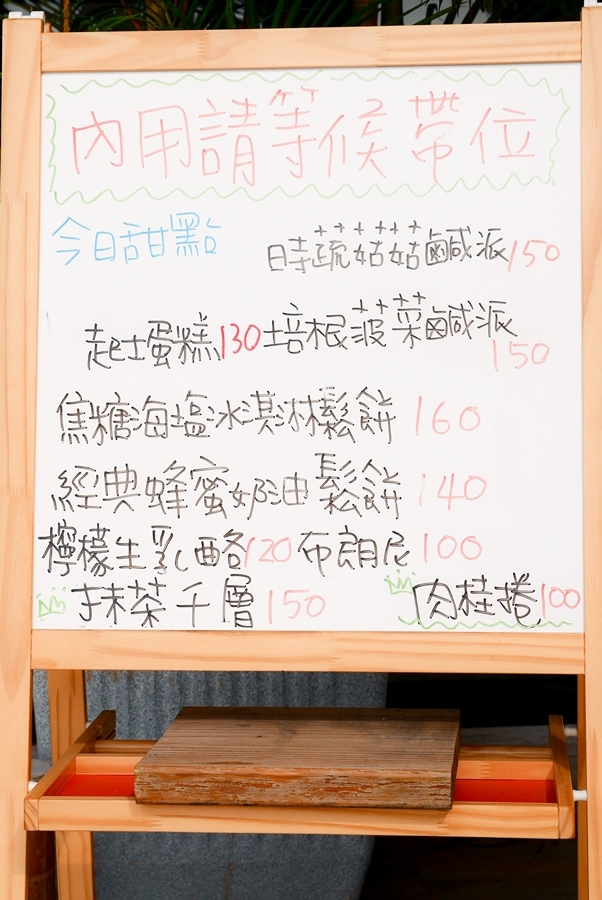 內用請等候帶位
今日甜點 時蔬菇菇鹹派150
起士蛋糕130 培根菠菜鹹派150
焦糖海塩冰淇淋鬆餅 160
經典蜂蜜奶油鬆餅 140
檸檬生乳酪120 布朗尼 100
抹茶千層150 肉桂捲100